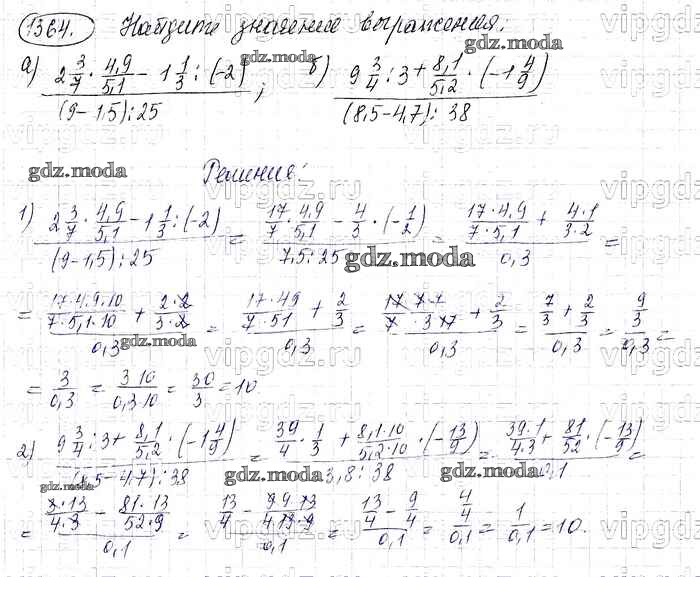 1364. Найдите значение выражения:
а) (2 3/7 · 4,9/5,1 − 1 1/3 : (−2)) / ((9−1,5) : 25); б) (9 3/4 : 3 + 8,1/5,2 · (−1 4/9)) / ((8,5−4,7) : 38)
gdz.moda
Решение:
1) (2 3/7 · 4,9/5,1 − 1 1/3 : (−2)) / ((9−1,5) : 25) = (17/7 · 4,9/5,1 − 4/3 · (−1/2)) / (7,5 : 25) = ((17·4,9)/(7·5,1) + (4·1)/(3·2)) / 0,3 =
= ((17·4,9·10)/(7·5,1·10) + (2·2)/(3·2)) / 0,3 = ((17·49)/(7·51) + 2/3) / 0,3 = ((17·7·7)/(7·3·17) + 2/3) / 0,3 = (7/3 + 2/3) / 0,3 = (9/3) / 0,3 =
= 3/0,3 = (3·10)/(0,3·10) = 30/3 = 10.
2) (9 3/4 : 3 + 8,1/5,2 · (−1 4/9)) / ((8,5−4,7) : 38) = (39/4 · 1/3 + (8,1·10)/(5,2·10) · (−13/9)) / (3,8 : 38) = ((39·1)/(4·3) + 81/52 · (−13/9)) / 0,1 =
= ((3·13)/(4·3) − (81·13)/(52·9)) / 0,1 = (13/4 − (9·9·13)/(4·13·9)) / 0,1 = (13/4 − 9/4) / 0,1 = (4/4) / 0,1 = 1/0,1 = 10.